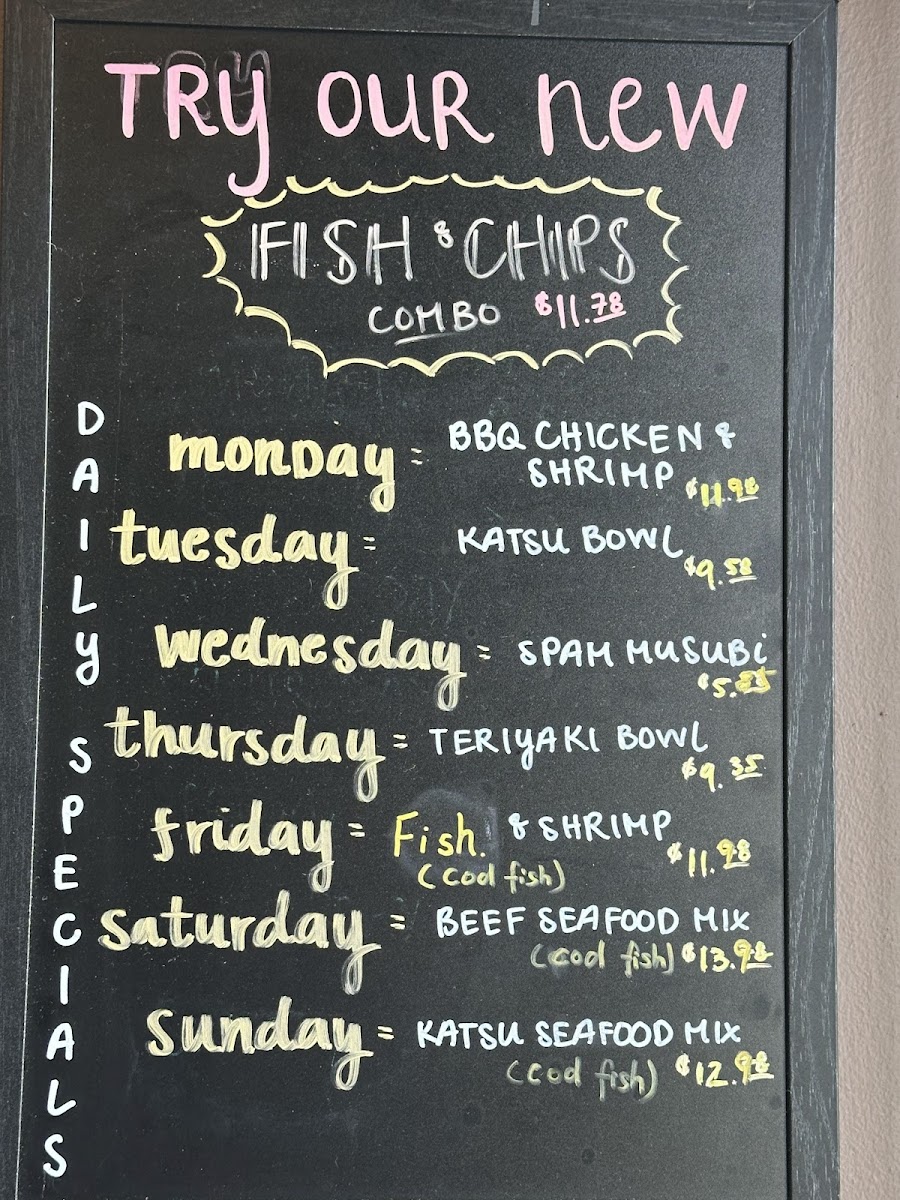 TRY OUR new
FISH & CHIPS
COMBO $11.78
DAILY SPECIALS
monday = BBQ CHICKEN &
SHRIMP $11.98
tuesday = KATSU BOWL
$9.58
wednesday = SPAM MUSUBi
thursday = TERIYAKI BOWL
$9.35
friday = Fish. & SHRIMP
(cod fish) $11.98
saturday = BEEF SEAFOOD MIX
(cod fish) $13.98
sunday = KATSU SEAFOOD MIX
(cod fish) $12.98